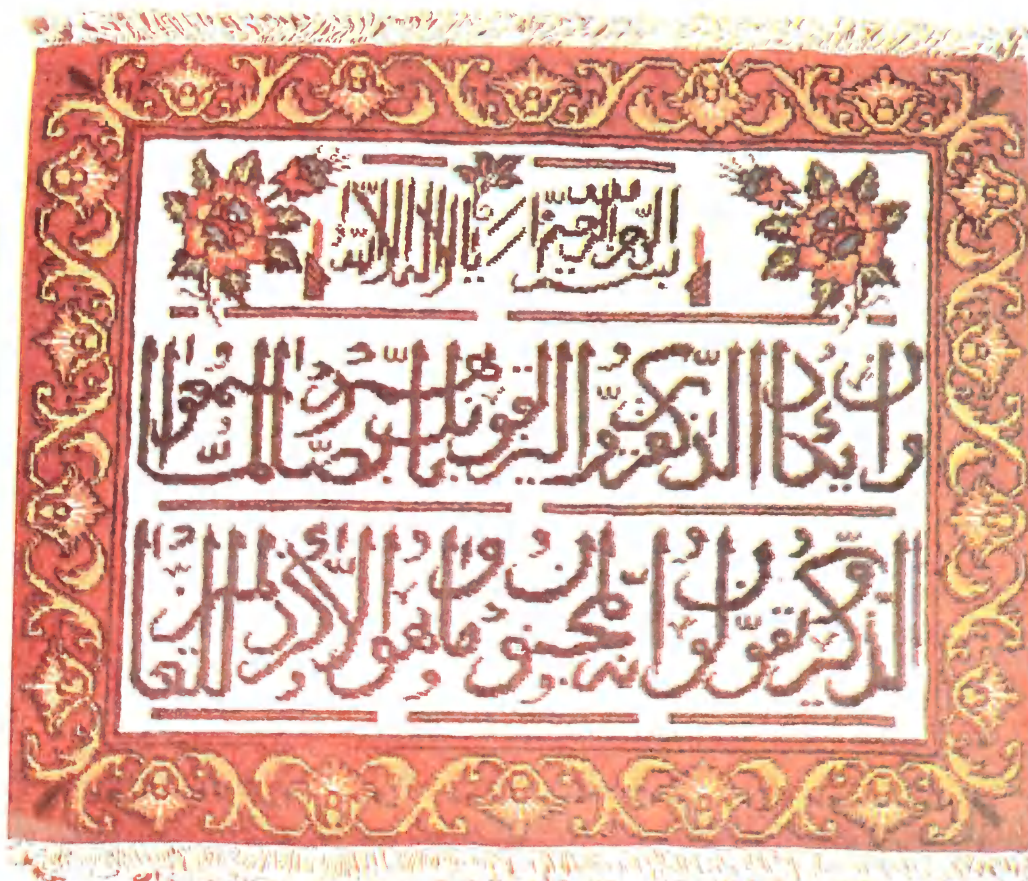 بسم الله الرحمن الرحيم
وَإِن يَكَادُ الَّذِينَ كَفَرُوا لَيُزْلِقُونَكَ بِأَبْصَارِهِمْ لَمَّا سَمِعُوا
الذِّكْرَ وَيَقُولُونَ إِنَّهُ لَمَجْنُونٌ وَمَا هُوَ إِلَّا ذِكْرٌ لِّلْعَالَمِينَ